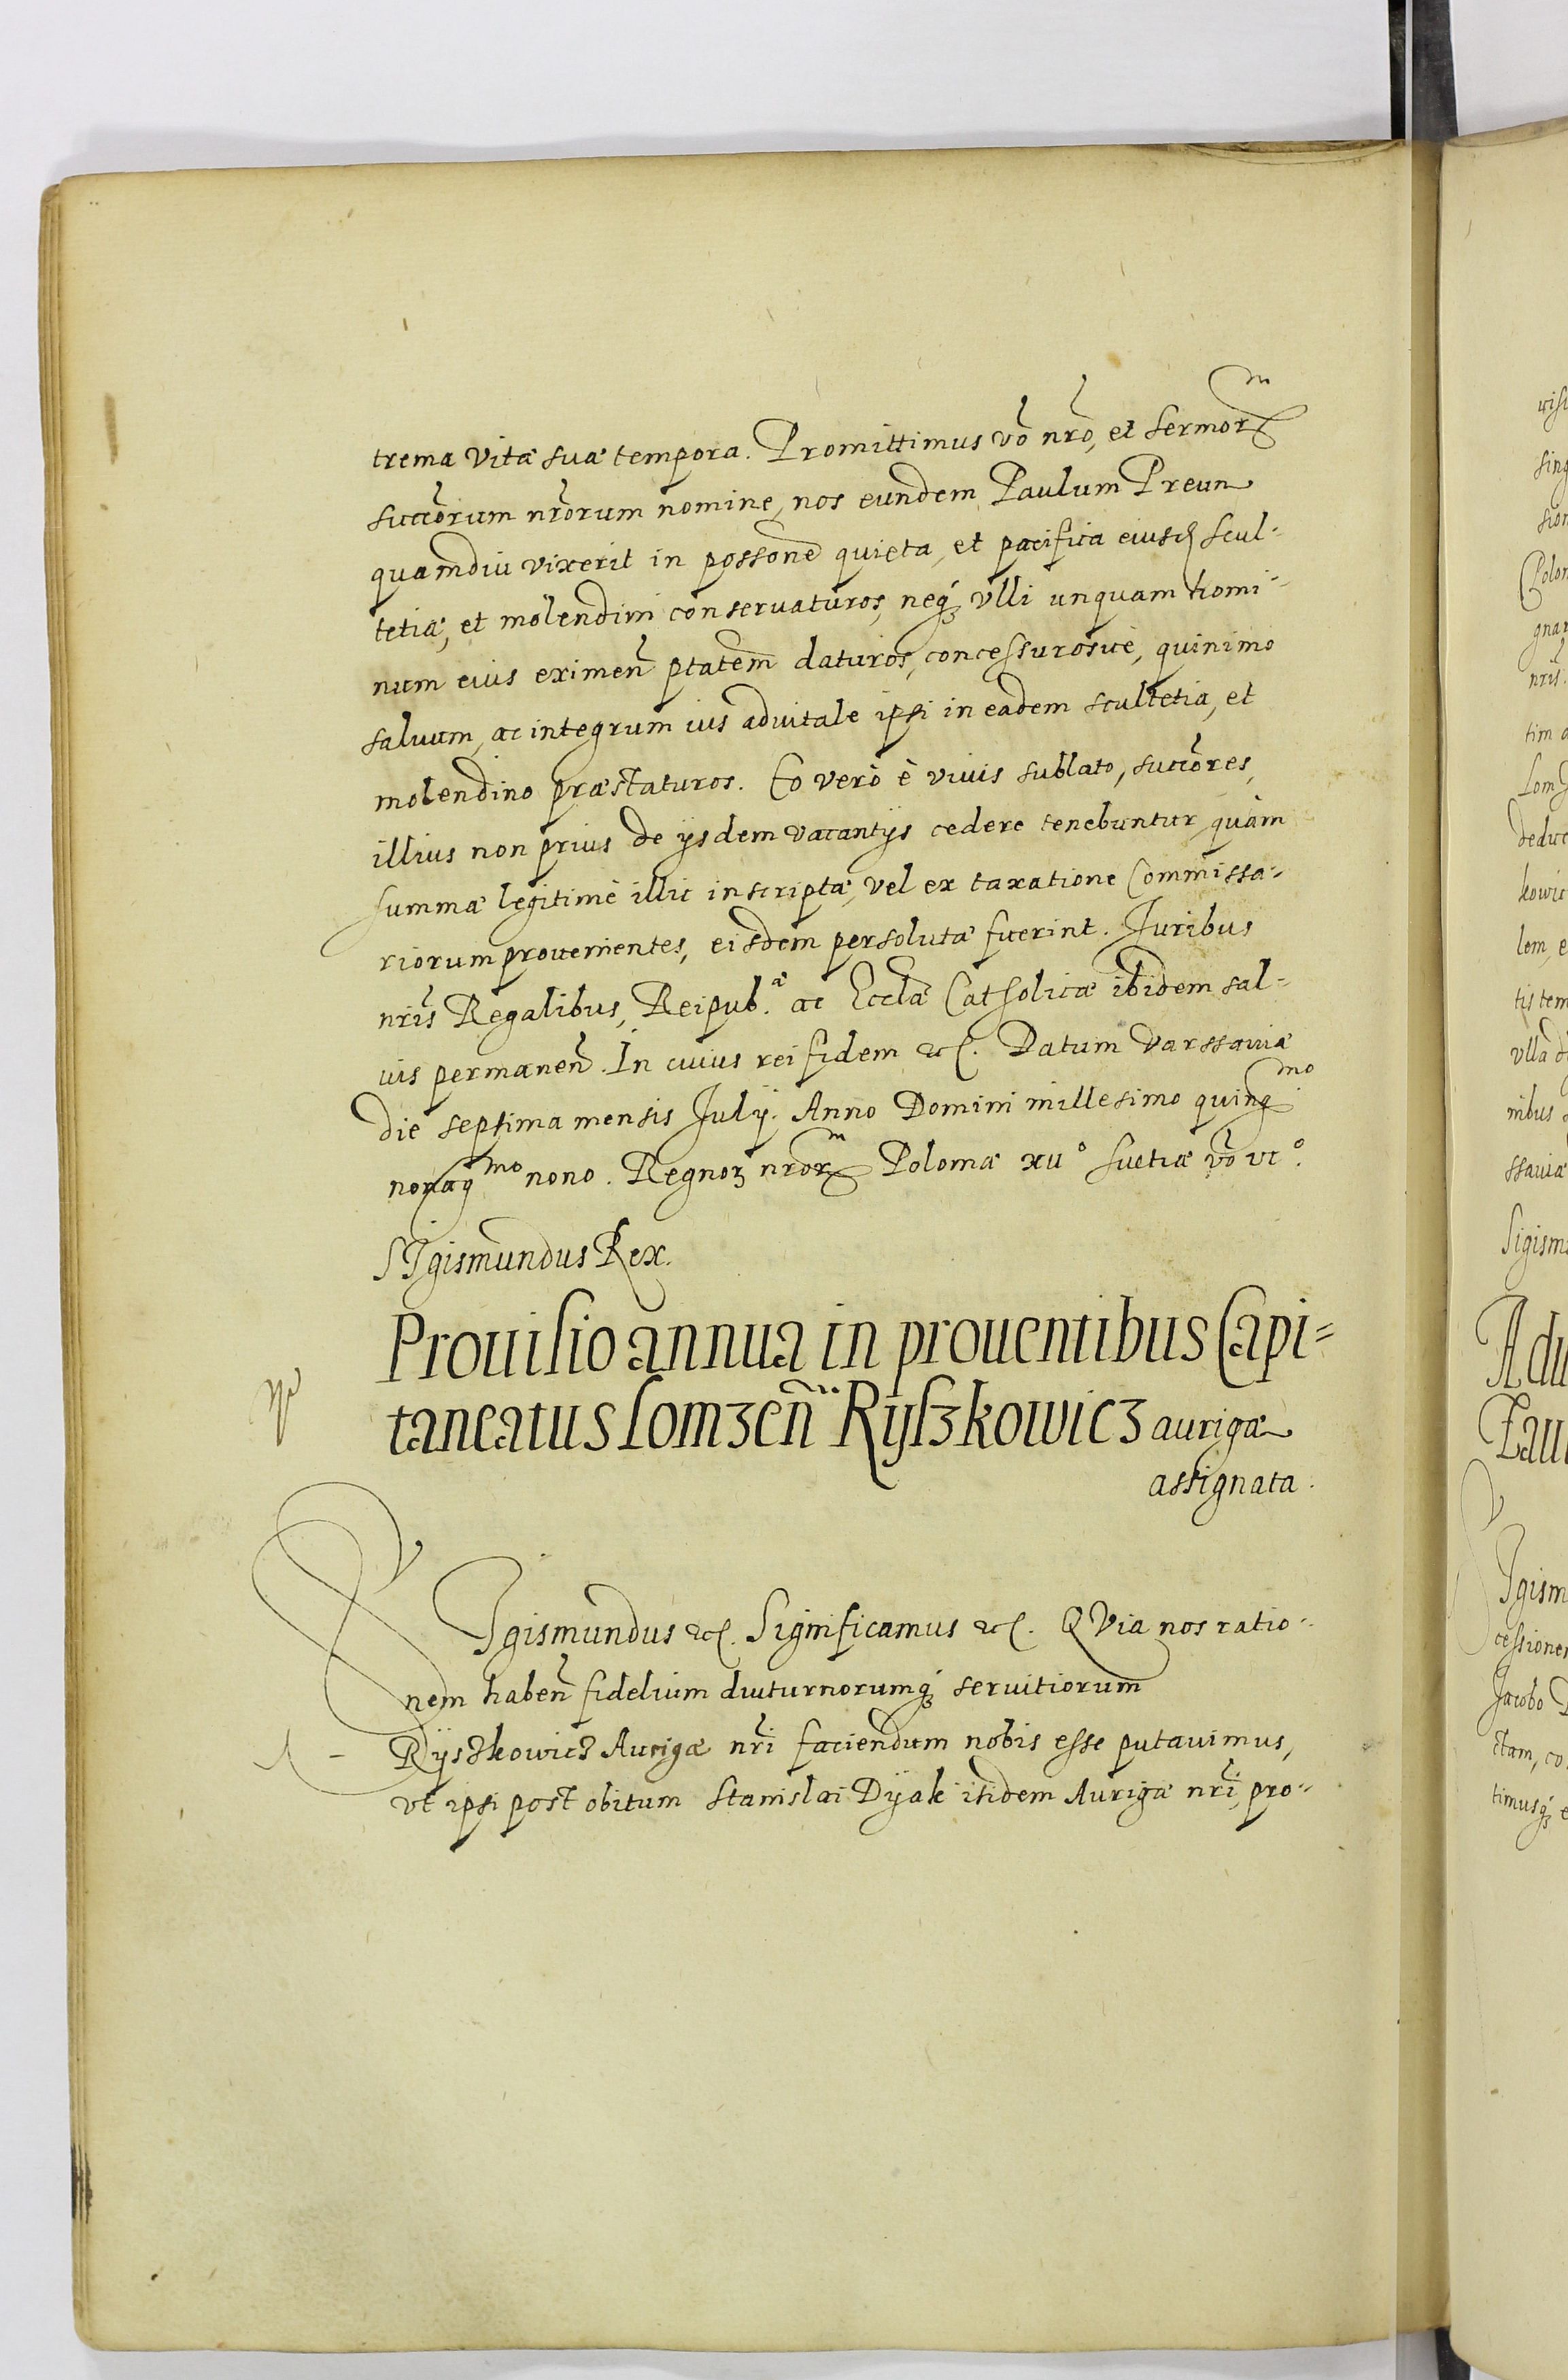 trema vitæ suæ tempora. Promittimus vo͞ nr͞o, et Sermorꝝͫ
succ͞orum nr͞orum nomine, nos eundem Paulum Preun
quamdiu vixerit in possone͞ quieta, et pacifica eiusdꝫ Scul-
tetiæ, et molendini conseruaturos, neqꝫ vlli unquam homi-
num eius eximen͞ ptatem͞ daturos, concessurosue, quinimo
saluum, ac integrum ius aduitale ipsi in eadem scultetia, et
molendino præstaturos. Eo verò è viuis sublato, succ͞ores,
illius non prius de ijsdem vacantijs cedere tenebuntur quàm
summæ legitimè illic inscriptæ, vel ex taxatione Commissa-
riorum prouenientes, eisdem persolutæ fuerint. Juribus
nr͞is Regalibus, Reipub.æ ac Eccl͞æ Catholicæ ibidem sal-
uis permanen͞. In cuius rei fidem etc. Datum Varssauiæ
die septima mensis Julij. Anno Domini millesimo quingmo
nonagmo nono. Regnoꝝ nrorꝝͫ Poloniæ xiio Suetiæ vo͞ vio.
SIgismundus Rex.
Prouisio annua in prouentibus Capi-
taneatus Lomzen͞ Rÿszkowicz aurigæ
assignata.
SIgismundus etc. Significamus etc. QVia nos ratio-
nem haben͞ fidelium diuturnorumqꝫ seruitiorum
Rÿszkowicz Aurigæ nr͞i faciendum nobis esse putauimus,
vt ipsi post obitum Stanislai Dÿak itidem Aurigæ nr͞i, pro-
Sigism